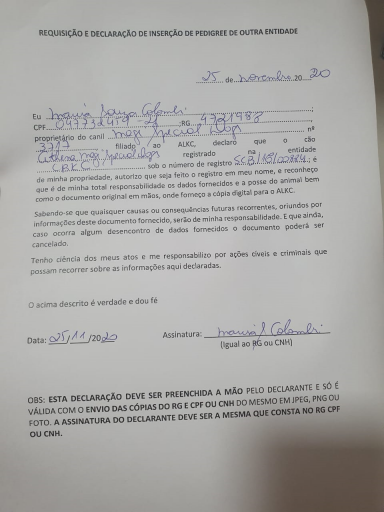 REQUISIÇÃO E DECLARAÇÃO DE INSERÇÃO DE PEDIGREE DE OUTRA ENTIDADE
25 de novembro 20 20
Eu Colombi
CPF RG 4721988
proprietário do canil mogs Special Dogs nº
3717 filiado ao ALKC, declaro que o cão
mogs Special Dogs registrado na entidade
CBKC sob o número de registro é
de minha propriedade, autorizo que seja feito o registro em meu nome, e reconheço
que é de minha total responsabilidade os dados fornecidos e a posse do animal bem
como o documento original em mãos, onde forneço a cópia digital para o ALKC.
Sabendo-se que quaisquer causas ou consequências futuras recorrentes, oriundos por
informações deste documento fornecido, serão de minha responsabilidade. E que ainda,
caso ocorra algum desencontro de dados fornecidos o documento poderá ser
cancelado.
Tenho ciência dos meus atos e me responsabilizo por ações cíveis e criminais que
possam recorrer sobre as informações aqui declaradas.
O acima descrito é verdade e dou fé
Data: 25/11/2020 Assinatura: Colombi
(Igual ao RG ou CNH)
OBS: ESTA DECLARAÇÃO DEVE SER PREENCHIDA A MÃO PELO DECLARANTE E SÓ É
VÁLIDA COM O ENVIO DAS CÓPIAS DO RG E CPF OU CNH DO MESMO EM JPEG, PNG OU
FOTO. A ASSINATURA DO DECLARANTE DEVE SER A MESMA QUE CONSTA NO RG CPF
OU CNH.